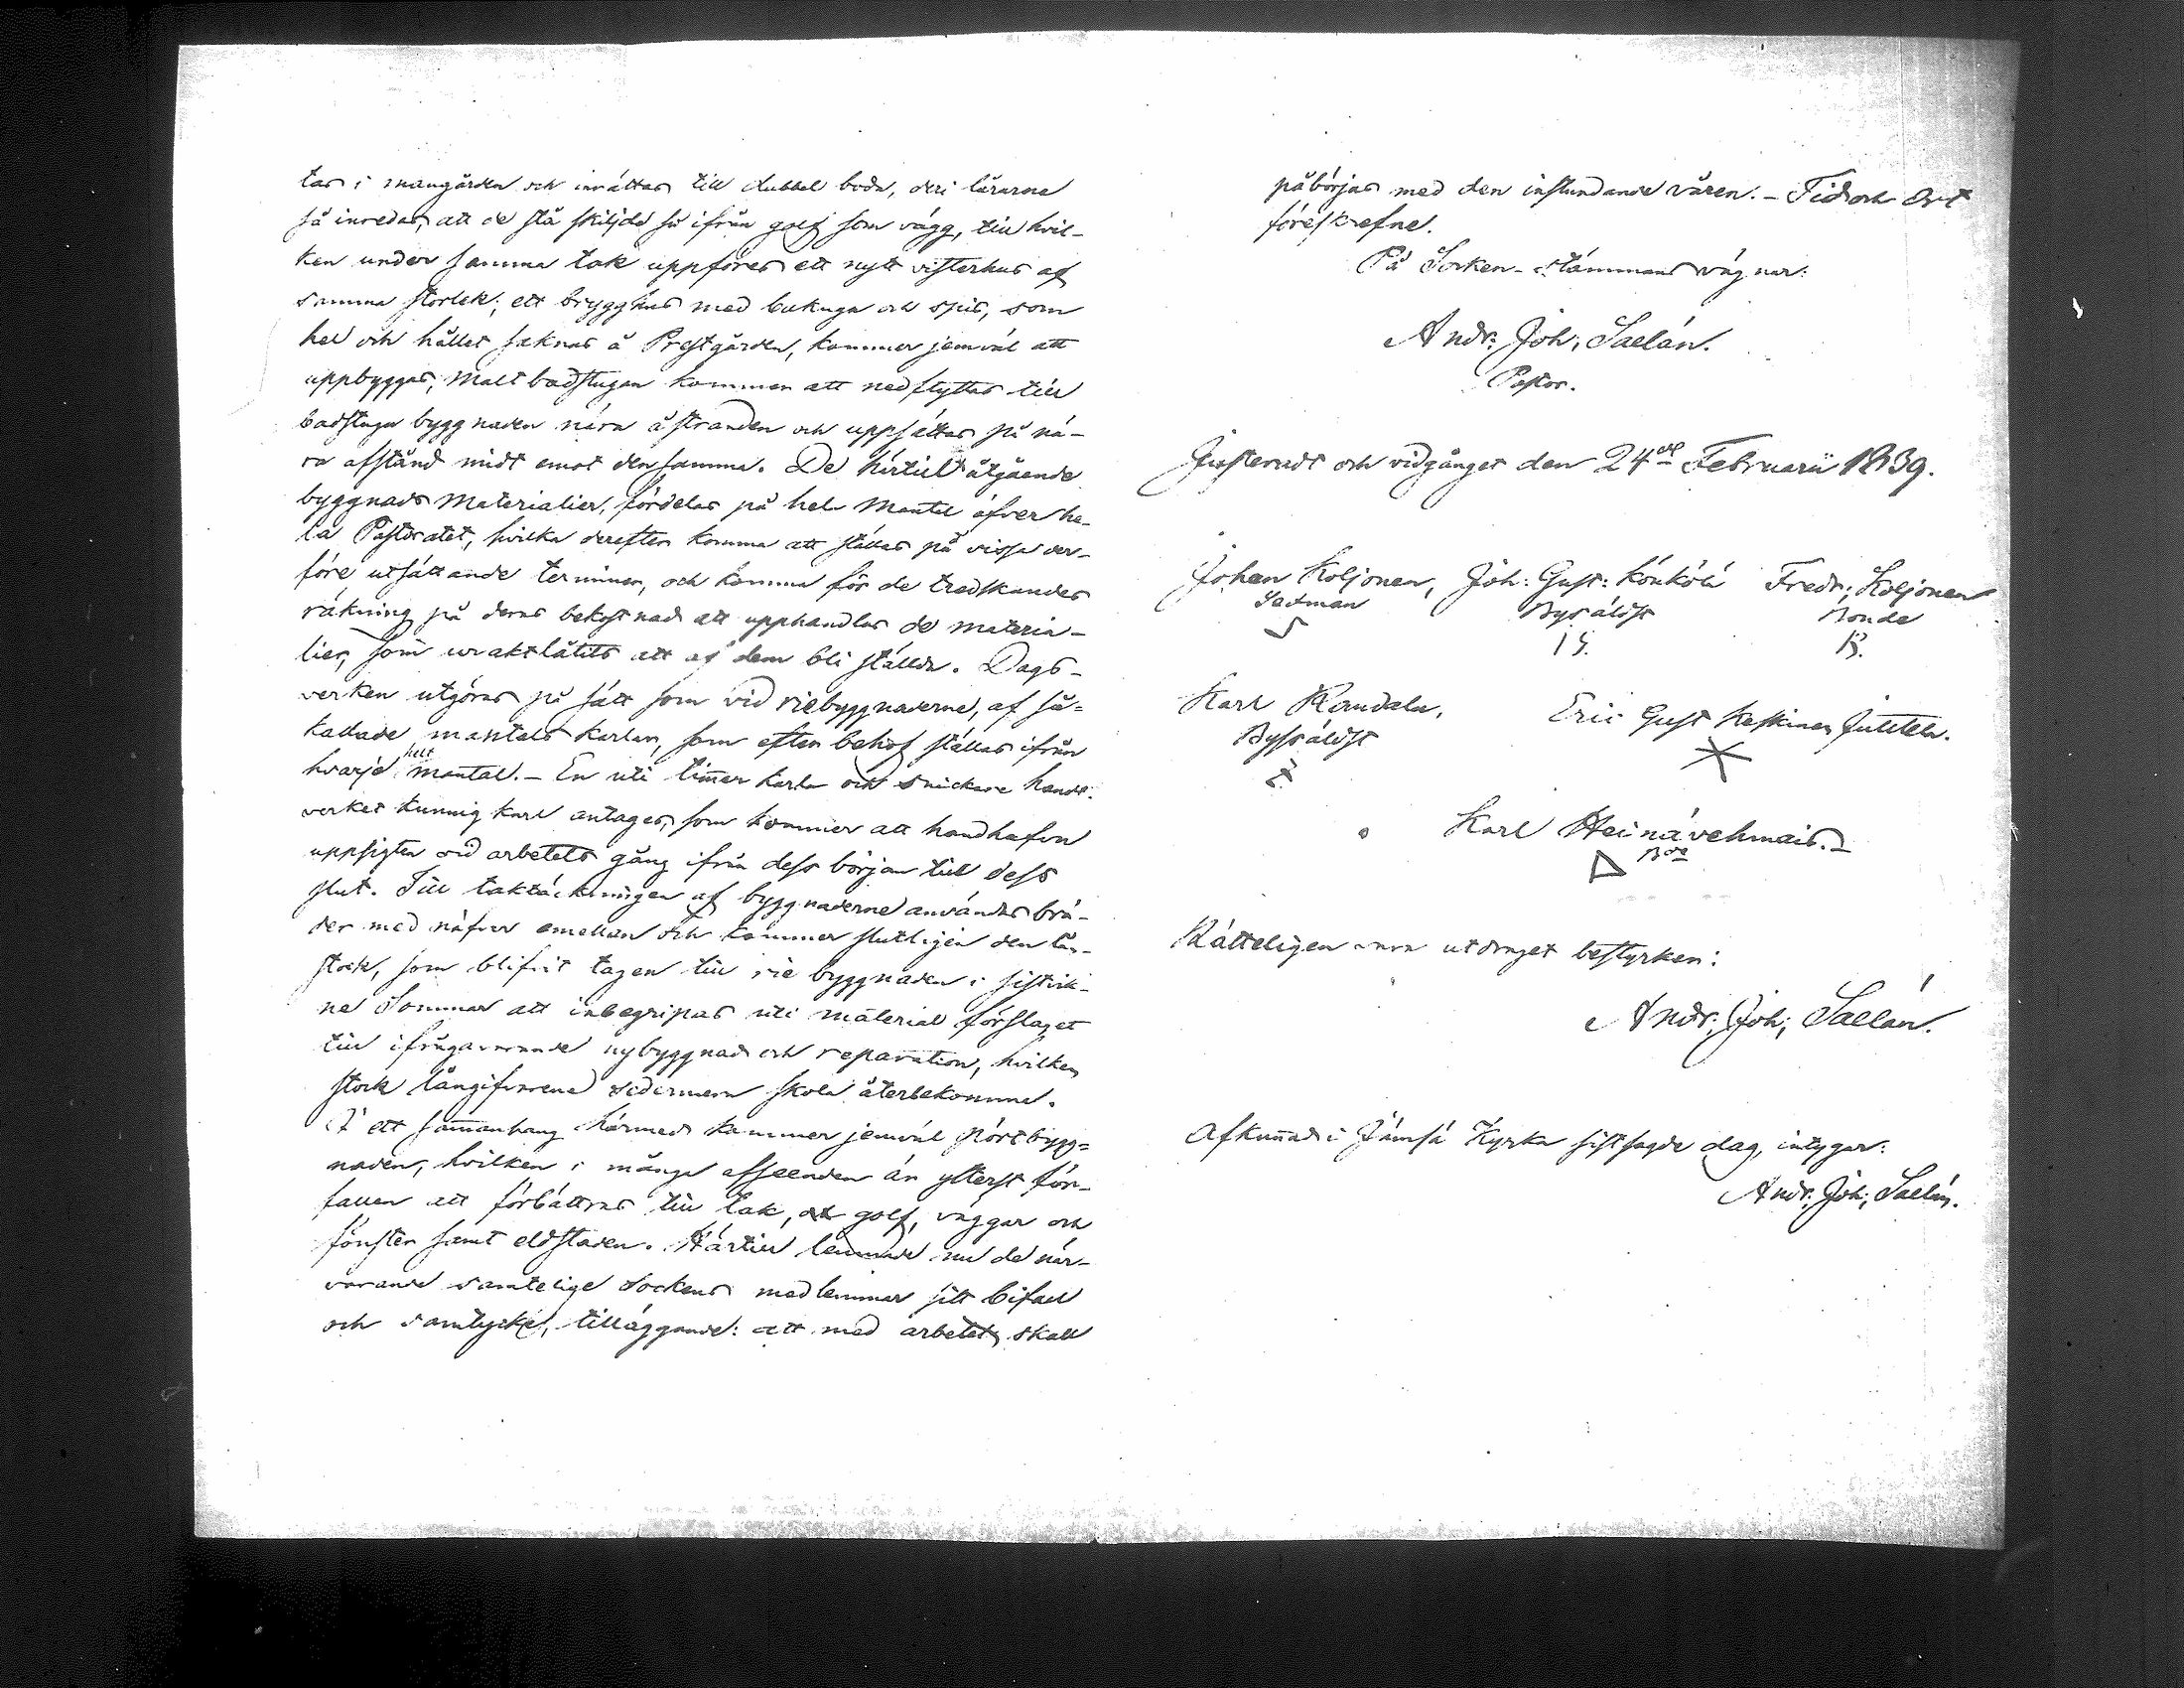 tas i mangården och inrättas till dubbel boda, deri lårarne
så inredas, att de stå skiljde så ifrån golf som vägg, till hvil-
ken under samma tak uppföres ett nytt visterhus af
samma storlek; ett brygghus med bakugn och spis, som
hel och hållet saknas å Prestgården, kommer jemväl att
uppbyggas; Malt badstugan kommer att nedflyttas till
badstugu byggnaden nära åstranden och uppsättas på nä-
ra afstånd midt emot densamma. De härtill åtgående
byggnads Materialier, fördelas på hela Mantal öfver he-
la Pastoratet, hvilka derefter komma att ställas på vissa der-
före utsättande terminer, och komma för de tredskandes
räkning på deras bekostnad att upphandlas de materia-
lier, som uraktlåtits att af dem bli ställda. Dags-
verken utgöras på sätt som vid riebyggnaderne, af så-
kallade mantals karlar, som efter behof ställas ifrån
hvarje helt mantal. - En uti timmer karls och snickare handt-
verket kunnig karl antages, som kommer att handhafva
uppsigten vid arbetets gång ifrån dess början till dess
slut. Till taktäckningen af byggnaderne användes brä-
der med näfver emellan och kommer slutligen den lån-
stock, som blifvit tagen till rie byggnaden i sistvik-
ne Sommar att inbegripas uti material förslaget
till ifrågavarande nybyggnad och reparation, hvilken
stock långifvarene sedermera skola återbekomma.
I ett sammanhang härmed kommer jemväl pörtbygg-
naden, hvilken i många afseenden är ytterst för-
fallen att förbättras till tak, golf, väggar och
fönster samt eldstaden. Härtill lemnade nu de när-
varande samtelige Sockens medlemmar sitt bifall
och samtycke, tilläggande: att med arbetet skall
påbörjas med den instundande våren. - Tid och Ort
föreskrefne.
På Socken-stämmans vägnar:
Andr: Joh: Saelán.
Pastor.
Justeradt och vidgånget den 24de Februarii 1839.
Johan Koljonen, Joh: Gust: Könkölä Fredr: Koljonen
Sexman Bysäldst Bonde
Karl Rendala, Eric Gust Keskinen Juttela.
Bysäldst
Karl Heinävehmais.
Rätteligen vara utdraget bestyrken:
Andr: Joh; Saelán.
Afkunnad i Jämsä Kyrka sistsagde dag, intygar:
Andr: Joh; Saelán.